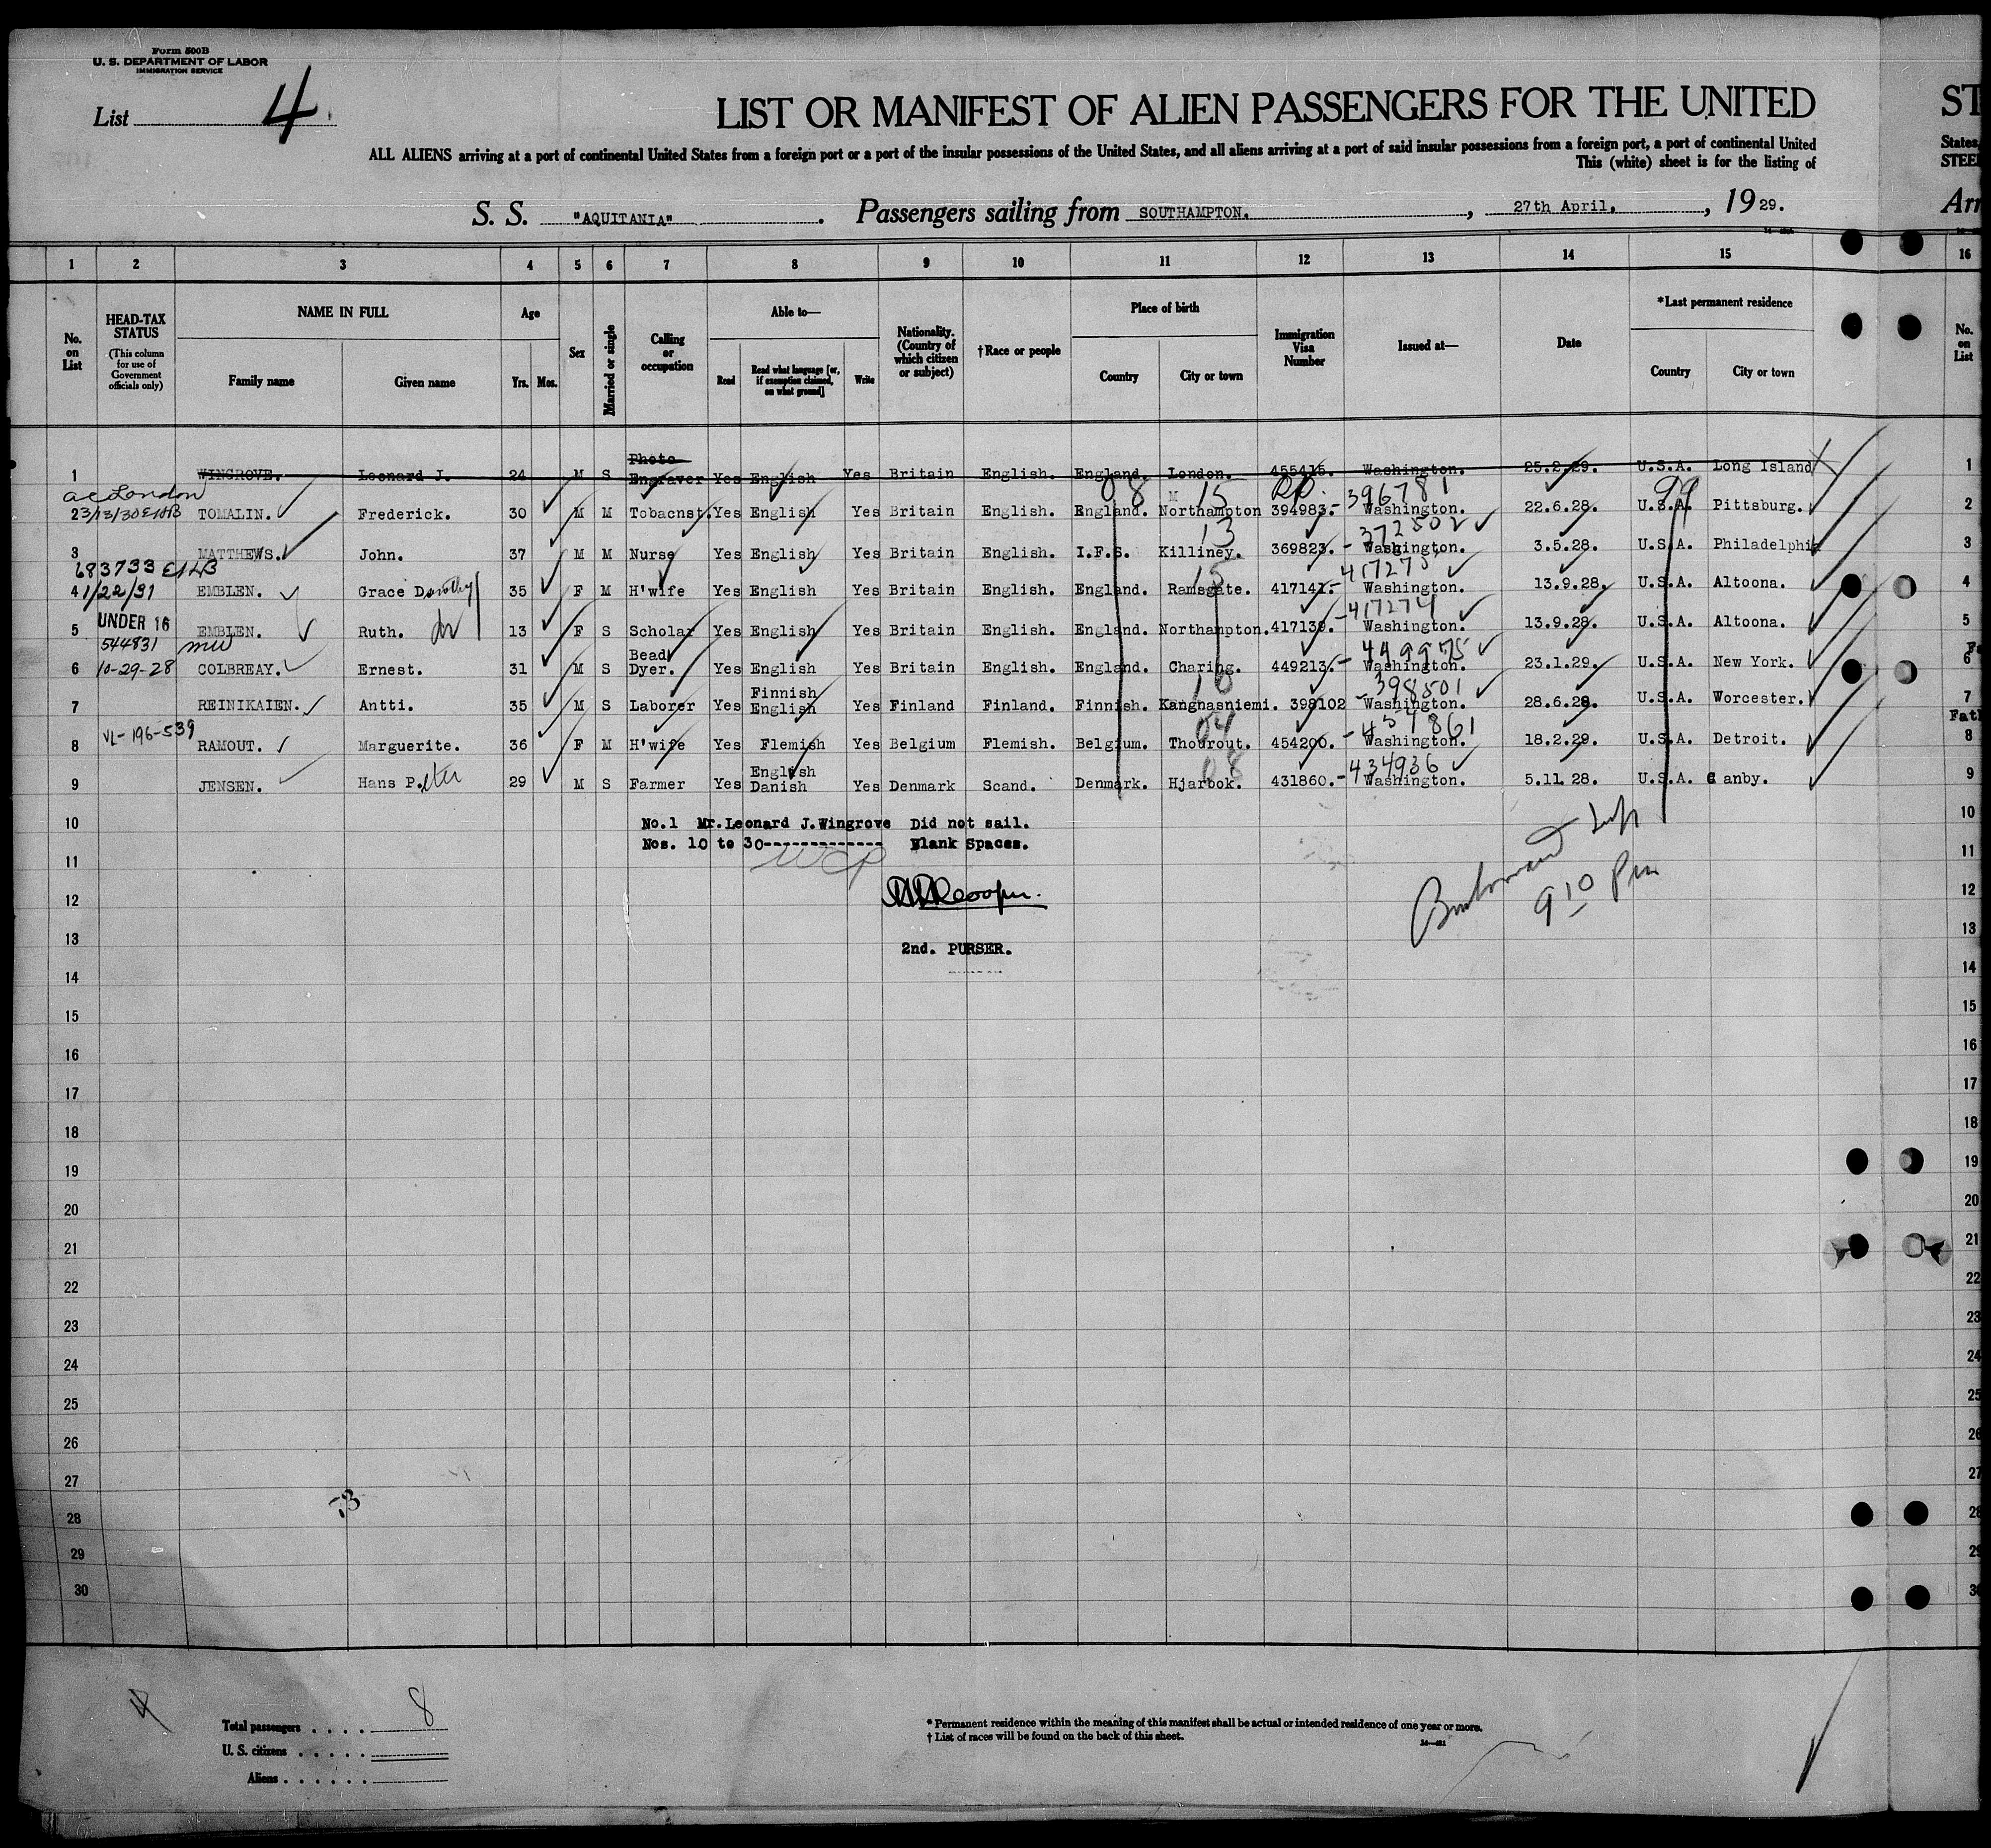 Form 500B
U. S. DEPARTMENT OF LABOR
IMMIGRATION SERVICE
List 4
LIST OR MANIFEST OF ALIEN PASSENGERS FOR THE UNITED ST
ALL ALIENS arriving at a port of continental United States from a foreign port or a port of the insular possessions of the United States, and all aliens arriving at a port of said insular possessions from a foreign port, a port of continental United States,
This (white) sheet is for the listing of STEE
S. S. "AQUITANIA" . Passengers sailing from SOUTHAMPTON. , 27th April. , 19 29. Arr
1 2 3 4 5 6 7 8 9 10 11 12 13 14 15 16
No. on List
HEAD-TAX STATUS
(This column for use of Government officials only)
NAME IN FULL
Family name Given name
Age
Yrs. Mos.
Sex
Married or single
Calling or occupation
Able to—
Read
Read what language [or, if exemption claimed, on what ground]
Write
Nationality. (Country of which citizen or subject)
†Race or people
Place of birth
Country City or town
Immigration Visa Number
Issued at—
Date
*Last permanent residence
Country City or town
No. on List
1 WINGROVE. Leonard J. 24 M S Photo Engraver Yes English Yes Britain English. England. London. 455415. Washington. 25.2.29. U.S.A. Long Island 1
ac London
08 M 15 RP. 396781 99
2 3/13/30 TOMALIN. Frederick. 30 M M Tobacnst. Yes English Yes Britain English. England. Northampton 394983.- Washington. 22.6.28. U.S.A. Pittsburg. 2
13 372502
3 MATTHEWS. John. 37 M M Nurse Yes English Yes Britain English. I.F.S. Killiney. 369823.- Washington. 3.5.28. U.S.A. Philadelphia 3
683733
15 417275
4 1/22/31 EMBLEN. Grace Dorothy 35 F M H'wife Yes English Yes Britain English. England. Ramsgate. 417141.- Washington. 13.9.28. U.S.A. Altoona. 4
UNDER 16
417274
5 EMBLEN. Ruth. 13 F S Scholar Yes English Yes Britain English. England. Northampton. 417139.- Washington. 13.9.28. U.S.A. Altoona. 5
544831
449975
6 10-29-28 COLBREAY. Ernest. 31 M S Bead Dyer. Yes English Yes Britain English. England. Charing. 449213.- Washington. 23.1.29. U.S.A. New York. 6
398501
7 REINIKAIEN. Antti. 35 M S Laborer Yes Finnish English Yes Finland Finland. Finnish. Kangnasniemi. 398102 - Washington. 28.6.28. U.S.A. Worcester. 7
VL-196-539
04 454861 Fat
8 RAMOUT. Marguerite. 36 F M H'wife Yes Flemish Yes Belgium Flemish. Belgium. Thourout. 454200.- Washington. 18.2.29. U.S.A. Detroit. 8
08 434936
9 JENSEN. Hans Peter 29 M S Farmer Yes English Danish Yes Denmark Scand. Denmark. Hjarbok. 431860.- Washington. 5.11.28. U.S.A. Canby. 9
10 No.1 Mr.Leonard J.Wingrove Did not sail. 10
Nos. 10 to 30------------- Blank Spaces.
11 11
12 12
9 10 Pm
13 2nd. PURSER. 13
14 14
15 15
16 16
17 17
18 18
19 19
20 20
21 21
22 22
23 23
24 24
25 25
26 26
27 27
28 28
29 29
30 30
Total passengers . . . . 8
U. S. citizens . . . . .
Aliens . . . . . .
* Permanent residence within the meaning of this manifest shall be actual or intended residence of one year or more.
† List of races will be found on the back of this sheet.